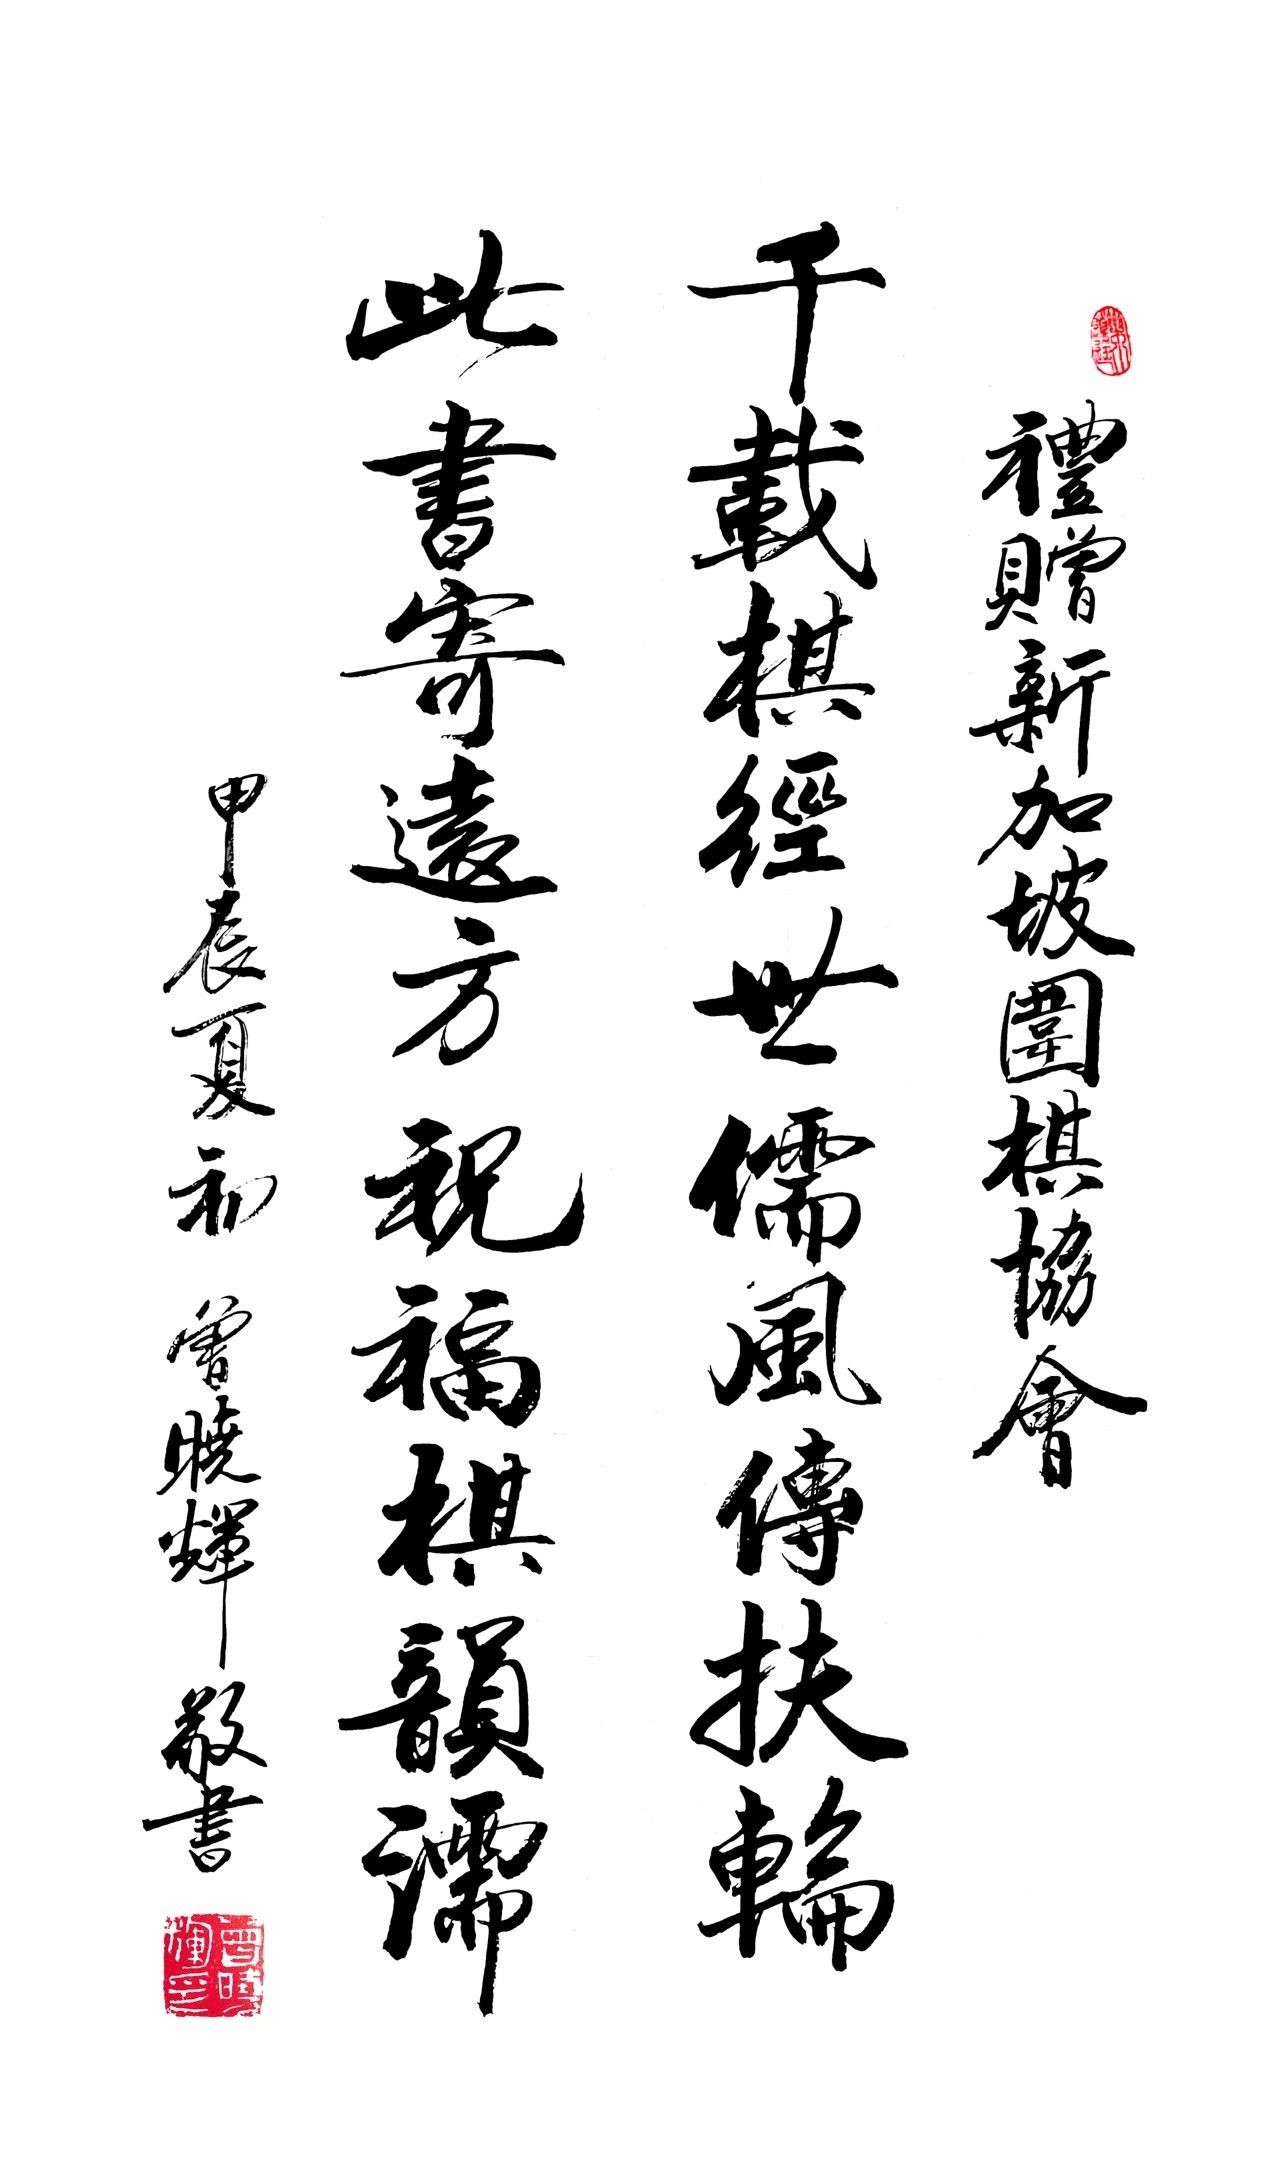 禮贈新加坡圍棋協會
千載棋經世儒風傳扶輪
此書寄遠方祝福棋韻濡
甲辰夏初 曾曉輝敬書
曾曉輝印